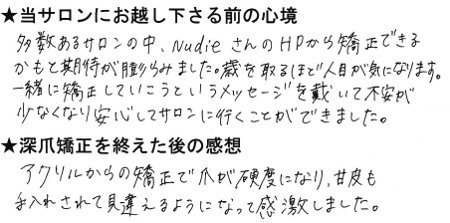 ★当サロンにお越し下さる前の心境
多数あるサロンの中、NudieさんのHPから矯正できる
かもと期待が膨らみました。歳を取るほど人目が気になります。
一緒に矯正していこうというメッセージを戴いて不安が
少なくなり安心してサロンに行くことができました。
★深爪矯正を終えた後の感想
アクリルからの矯正で爪が硬度になり、甘皮も
手入れされて見違えるようになって感激しました。